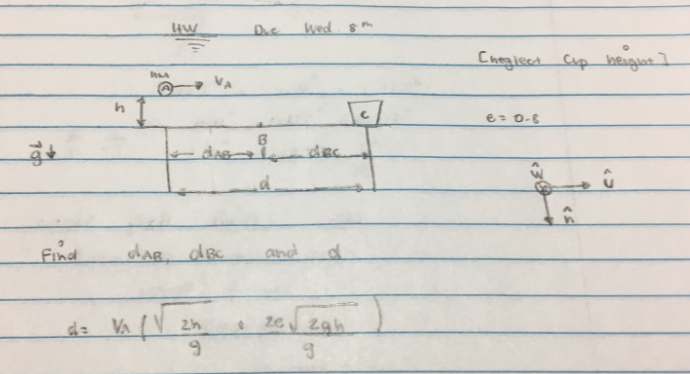 HW Due Wed. 8m
[Neglect Cup height]
mA
A → VA
h
C
e = 0.8
B
g↓
dAB dBC
d
ŵ
û
n̂
Find dAB, dBC and d
d = VA ( √2h/g + 2e√2gh/g )